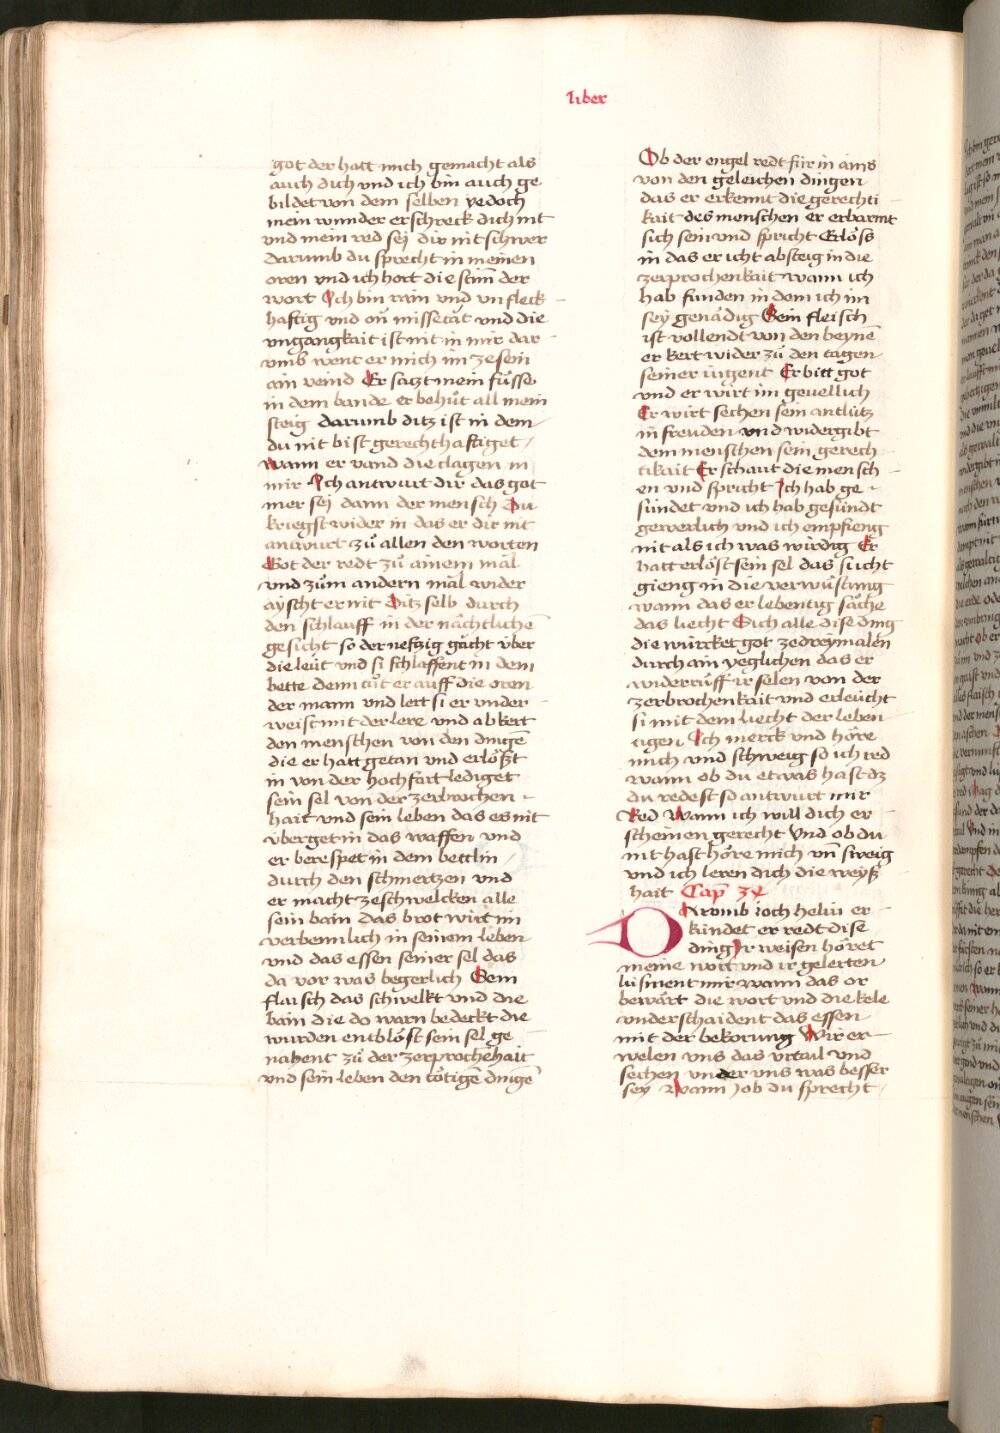 liber
got der hatt mich gemacht als
auch dich vnd ich bin auch ge
bildet von dem selben yedoch
mein wunder erschreck dich nit
vnd mein red sej dir nit schwer
darumb du sprecht in meinen
oren vnd ich hort die stim̄ der
wort Ich bin rain vnd vn fleck
haftig vnd on̄ missetät vnd die
vngangkait ist nit in mir dar
vmb went er mich im ze sein
ain veind Er satzt mein füsse
in dem bande er behüt all mein
steig darumb ditz ist in dem
du nit bist gerechthaftiget
wann er vand die clagen in
mir Ich antwurt dir das got
mer sej dann der mensch Du
kriegst wider in das er dir nit
antwurt zů allen den worten
Got der redt zů ainem mal
vnd zům andern mal wider
äyscht er nit Ditz selb durch
den schlauff in der nächtlichē
gesicht so der nefzig gächt über
die leüt vnd si schlaffent in dem
bette denn tůt er auff die oren
der mann vnd lert si er vnder
weist mit der lere vnd ab kert
den menschen von den dingē
die er hatt getan vnd erlößt
in von der hochfart lediget
sein sel von der zerbrochen
hait vnd sein leben das es nit
übergee in das waffen vnd
er berespet in dem bettlin
durch den schmertzen vnd
er macht ze schwelcken alle
sein bain das brot wirt im
verbennlich in seinem leben
vnd das essen seiner sel das
da vor was begerlich Sein
flaisch das schwelkt vnd die
bain die do warn bedeckt die
wurden enthlöst sein sel ge
nahent zů der zerprochēhait
vnd sein leben den tötigē dingē
Ob der engel redt für in ains
von den geleichen dingen
das er erkennt die gerechti
kait des menschen er erbarmt
sich sein vnd spricht Erlöss
in das er icht absteig in die
zerprochenkait wann ich
hab funden in dem ich im
sey genädig Sein fleisch
ist vollendt von den beynē
er kert wider zů den tagen
seiner iugent Er bitt got
vnd er wirt im geuellich
Er wirt sechen sein antlütz
in freuden vnd widergibt
dem menschen sein gerech
tikait Er schaut die mensch
en vnd spricht Ich hab ge
sündet vnd ich hab gesündt
gewerlich vnd ich empfieng
nit als ich was wirdig Er
hatt erlöst sein sel das sy icht
gieng in die verwüstung
wann das er lebentig säche
das liecht Sich alle dise ding
die würcket got ze dreymalen
durch ain yeglichen das er
widerrüff ir selen von der
zerbrochenkait vnd erleücht
si mit dem liecht der leben
tigen Ich merck vnd höre
mich vnd schweig so ich red
wann ob du etwas hast dz
du redest so antwürt mir
Red Wann ich will dich er
scheinen gerecht Vnd ob du
nit hast höre mich vn̄ sweig
vnd ich leren dich die weyß
hait Cap̄ 34
DArvmb ioch heliu er
kündet er redt dise
ding Ir weisen höret
meine wort vnd ir gelerten
lüsment mir wann das or
bewärt die wort vnd die kele
vnderschaident das essen
mit der bekorung Wir er
welen vns das vrtail vnd
sechen vnder vns was besser
sey Wann iob du sprecht